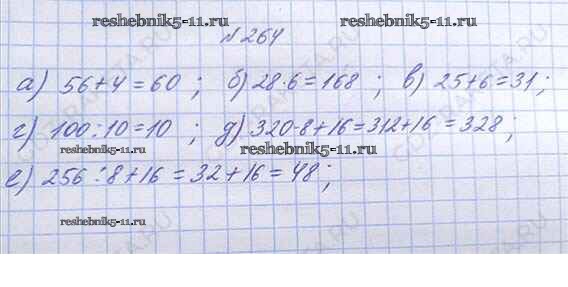 reshebnik5-11.ru reshebnik5-11.ru
№264
а) 56+4=60 ; б) 28·6=168 ; в) 25+6=31;
г) 100:10=10 ; д) 320-8+16=312+16=328;
reshebnik5-11.ru
е) 256:8+16=32+16=48;
reshebnik5-11.ru